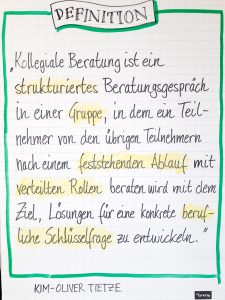 DEFINITION
„Kollegiale Beratung ist ein
strukturiertes Beratungsgespräch
in einer Gruppe, in dem ein Teil-
nehmer von den übrigen Teilnehmern
nach einem feststehenden Ablauf mit
verteilten Rollen beraten wird mit dem
Ziel, Lösungen für eine konkrete beruf-
liche Schlüsselfrage zu entwickeln."
KIM-OLIVER TIETZE